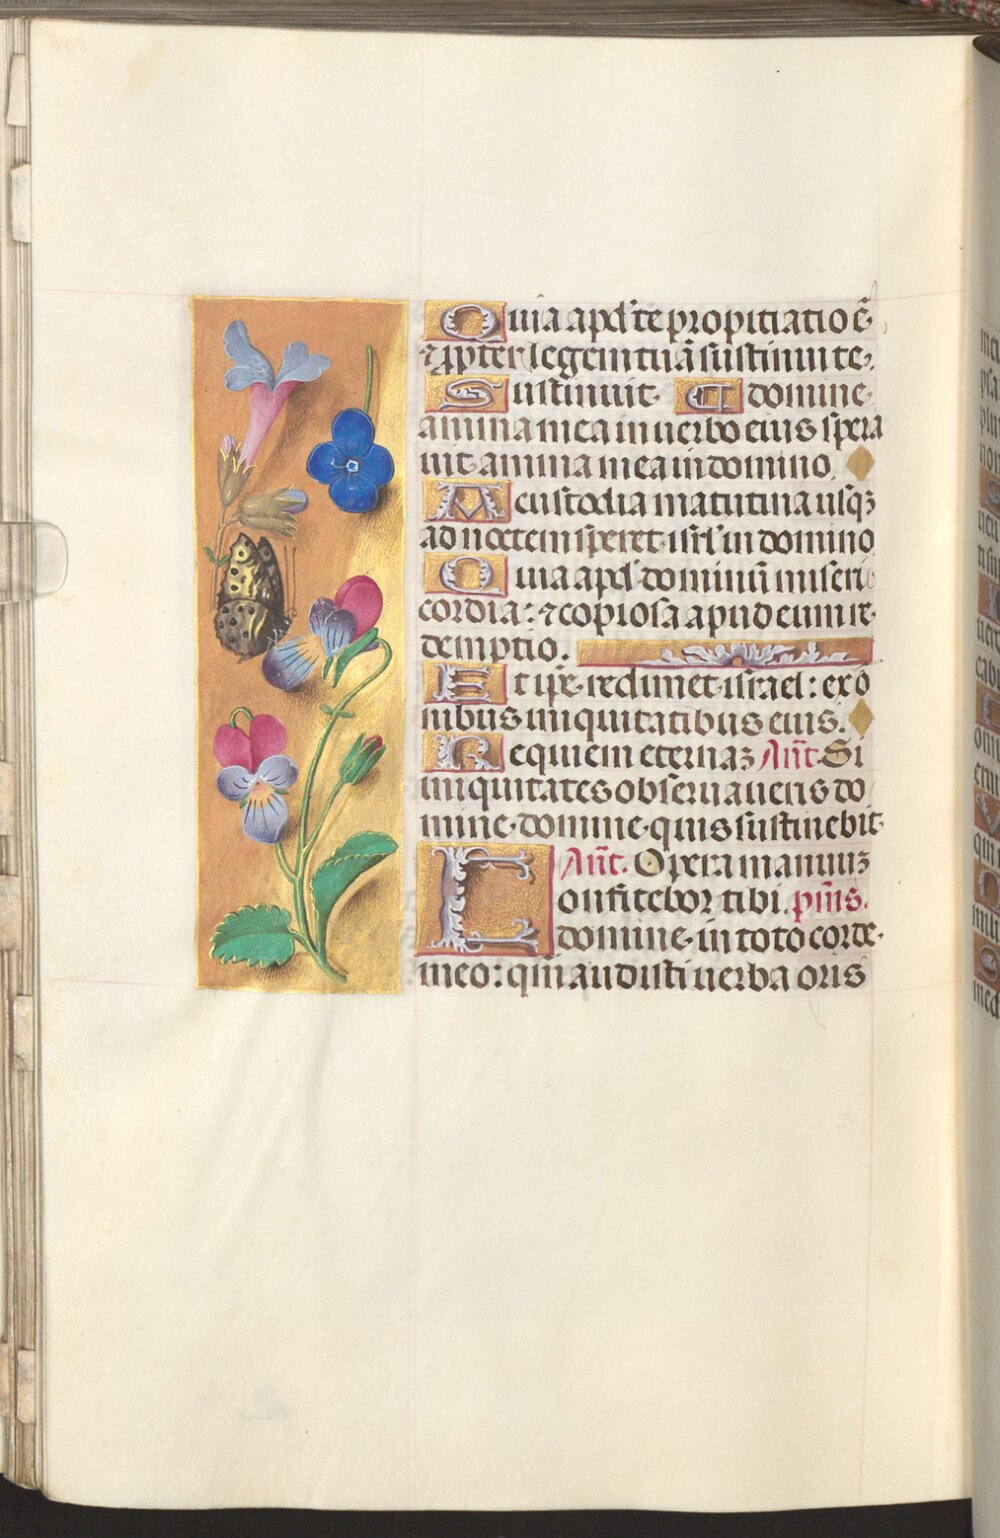 Quia apd' te propitiatio ē
⁊ ꝓpter legem tuā sustinui te.
Sustinuit. a domine
anima mea in uerbo eius spera
uit anima mea in domino.
A custodia matutina usqꝫ
ad noctem speret isrl' in domino
Quia apd' dominū miseri
cordia: ⁊ copiosa apud eum re
demptio.
Et ip̄e redimet israel: ex o
nibus iniquitatibus eius.
Requiem eternaꝫ Añt. Si
iniquitates obseruaueris do
mine. domine. quis sustinebit
Añt. Opera manuuꝫ
Confitebor tibi. psm̄s.
domine. in toto corde.
meo: qm̄ audisti uerba oris